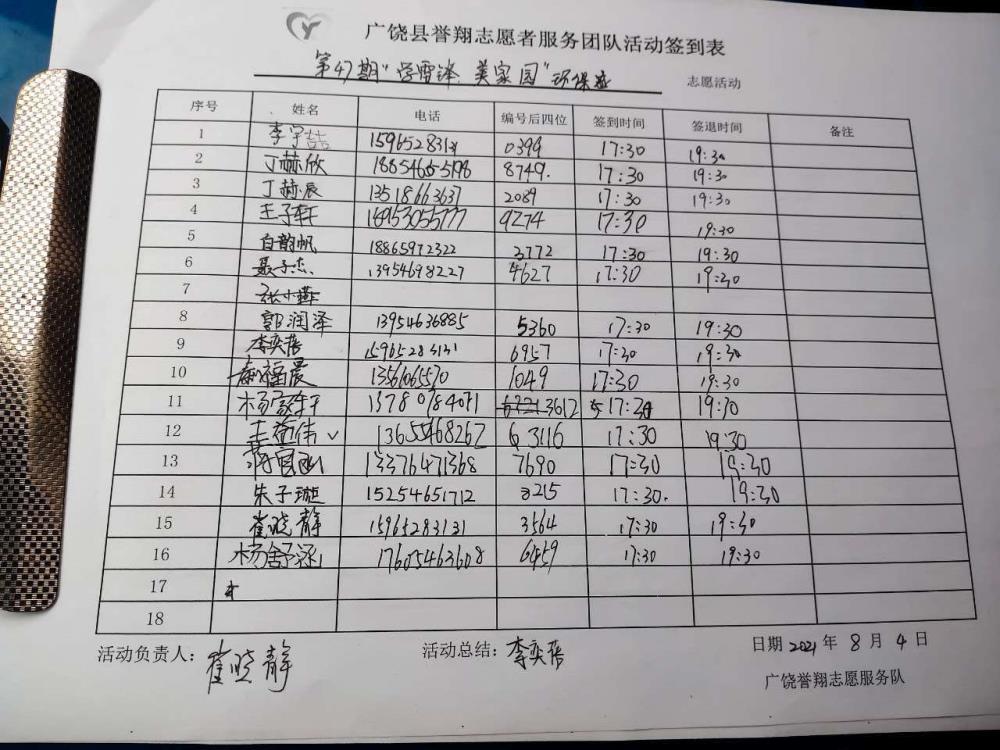 广饶县誉翔志愿者服务团队活动签到表
第47期"学雷锋、美家园"环保 志愿活动
序号 姓名 电话 编号后四位 签到时间 签退时间 备注
1 李宇喆 0399 17:30 19:30
2 丁赫欣 8749. 17:30 19:30
3 丁赫辰 13518663637 2089 17:30 19:30
4 王子轩 9274 17:30 19:30
5 白韵帆 18865972322 3772 17:30 19:30
6 聂子杰 13954698227 4627 17:30 19:30
7 张小
8 郭润泽 13954636885 5360 17:30 19:30
9 李奕蓓 15965283131 6957 17:30 19:30
10 1049 17:30 19:30
11 13780784071 3612 17:30 19:30
12 13655468262 3116 17:30 19:30
13 13376471368 7690 17:30 19:30
14 朱子璇 15254651712 17:30. 19:30
15 崔晓静 15965283131 3564 17:30 19:30
16 杨舒涵 17605463608 6459 17:30 19:30
17
18
活动负责人：崔晓静 活动总结：李奕蓓 日期 2021 年 8 月 4 日
广饶誉翔志愿服务队